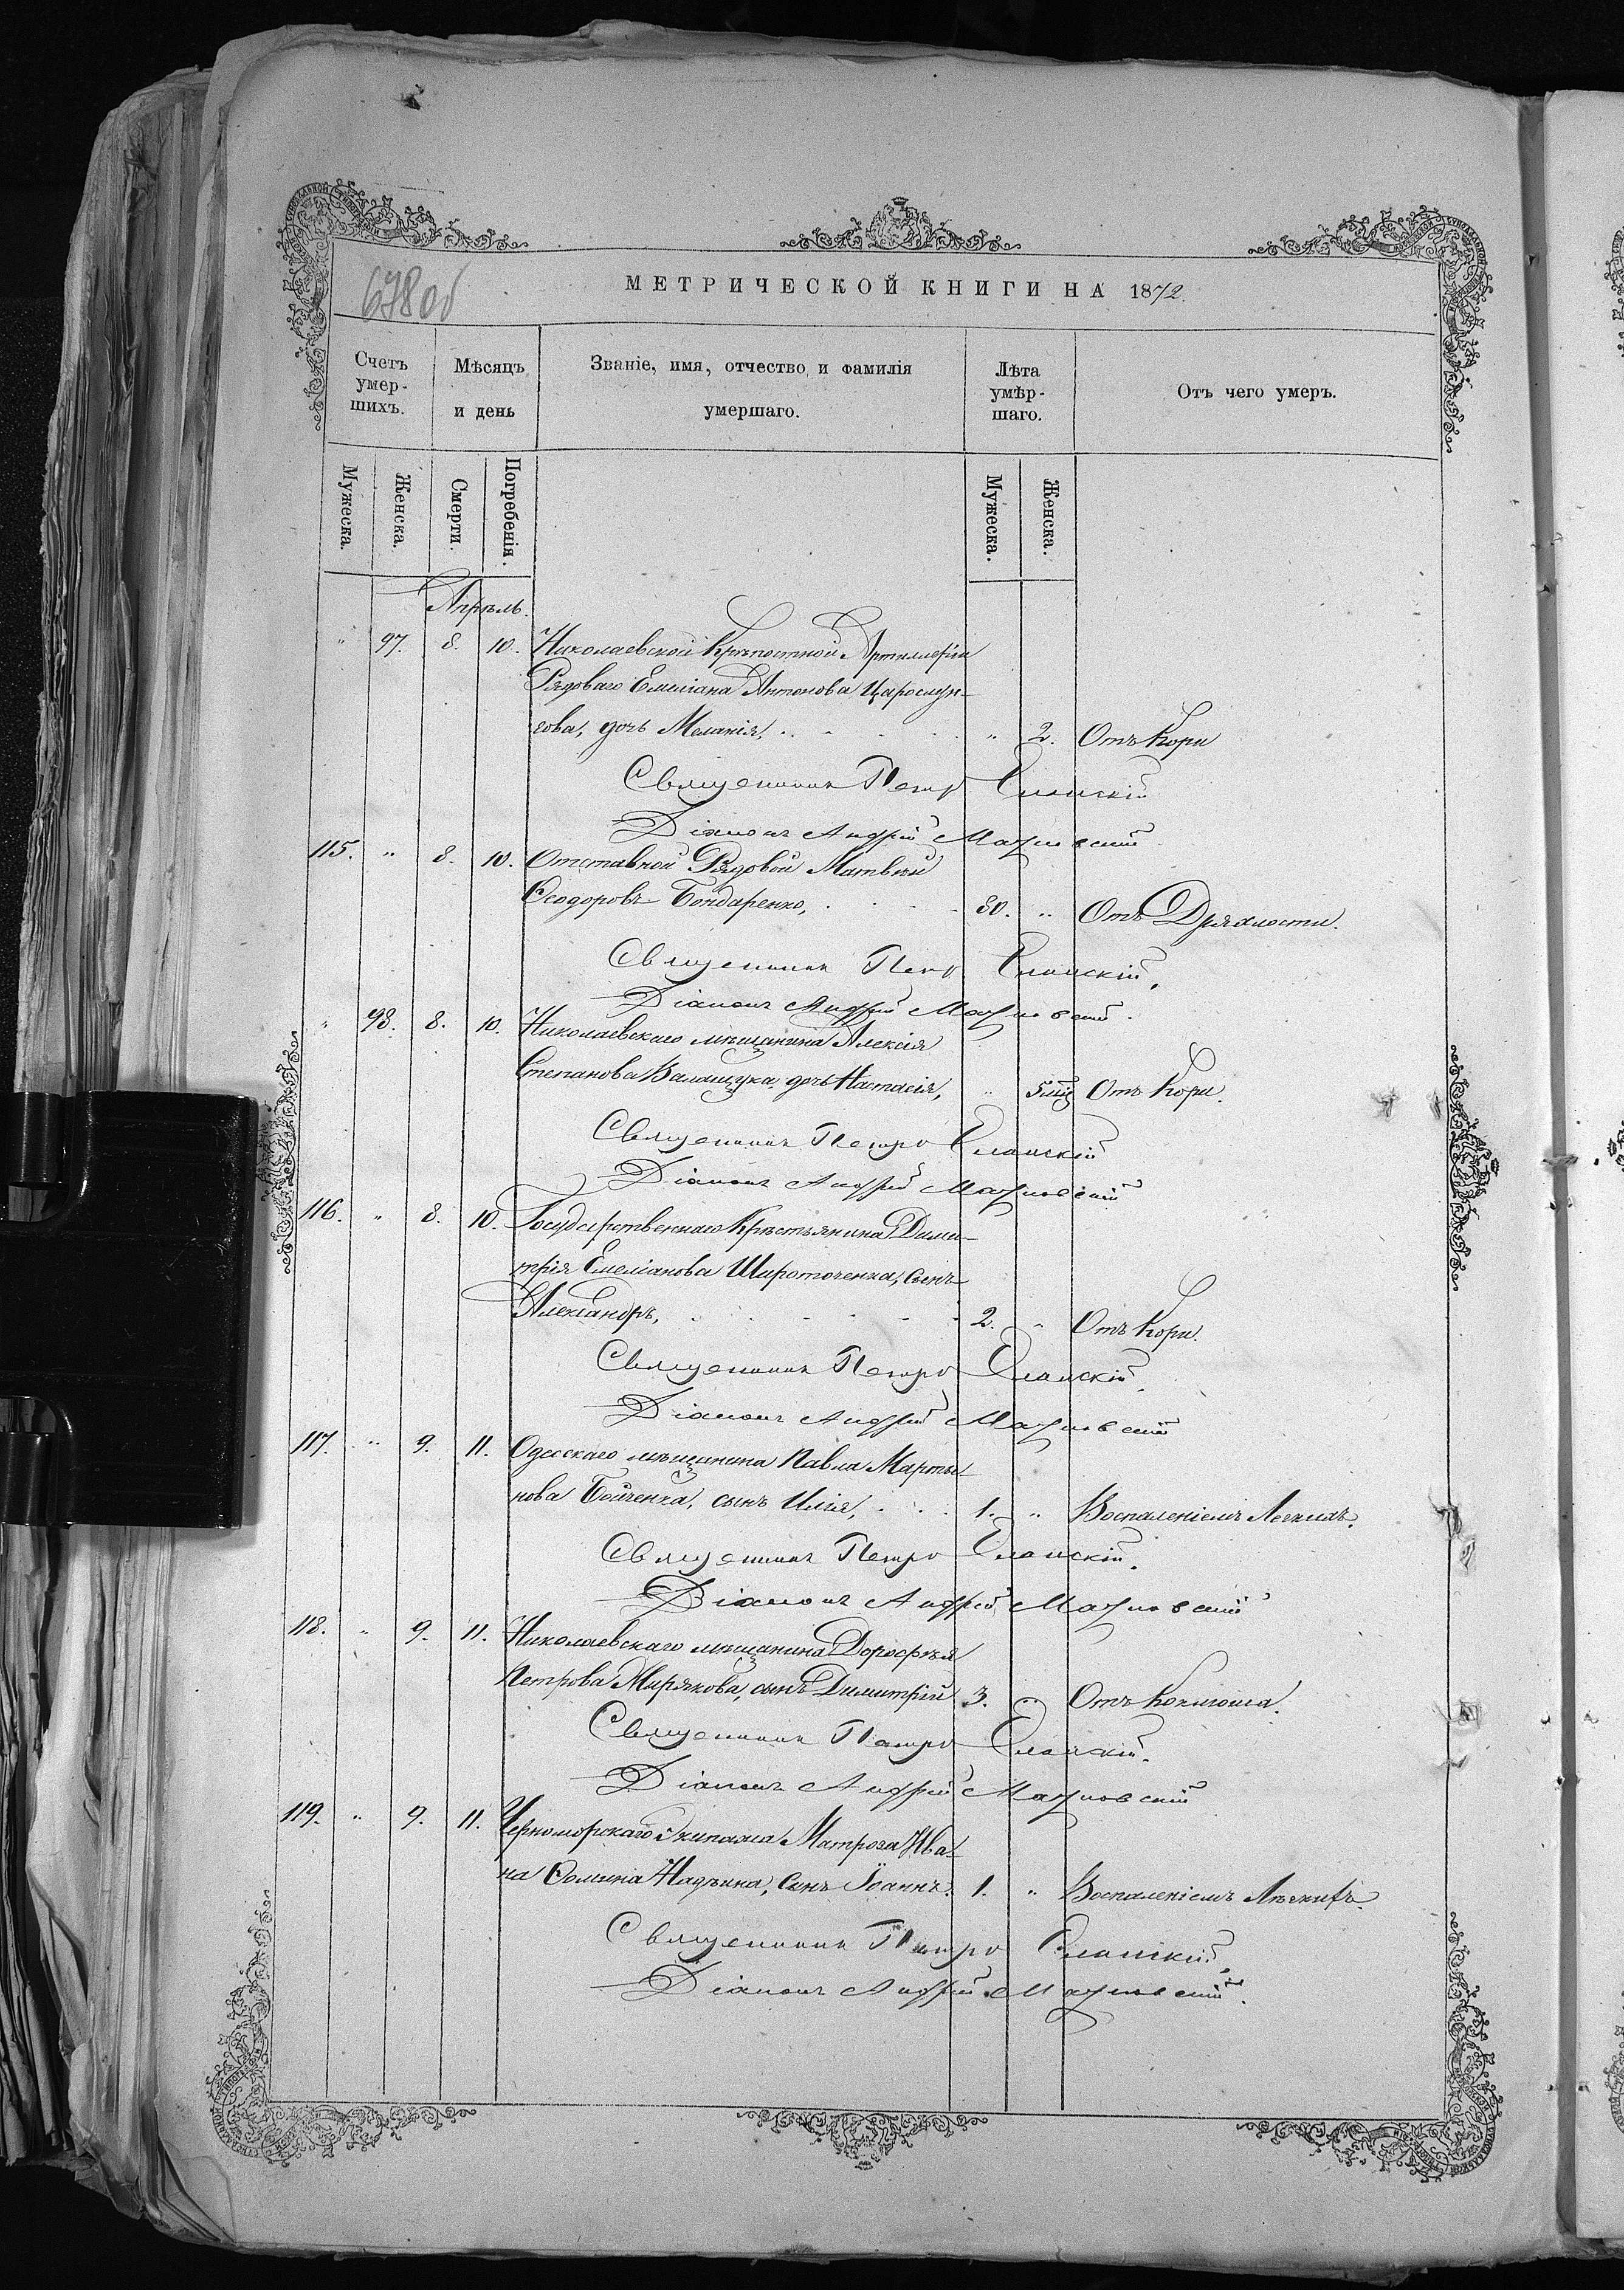 698 об
МЕТРИЧЕСКОЙ КНИГИ НА 1872.
Счетъ умер-шихъ.
Мѣсяцъ и день
Званіе, имя, отчество и фамилія умершаго.
Лѣта умѣр-шаго.
Отъ чего умеръ.
Мужеска.
Женска.
Смерти.
Погребенія.
Мужеска.
Женска.
Апрѣль.
" 97. 8. 10. Николаевской Крѣпостной Артиллеріи
Рядоваго Емеліана Антонова
гова, дочь Меланія, " 2. Отъ Кори
Священникъ Петръ Еланскій
Діаконъ Андрей
115. " 8. 10. Отставной Рядовой Матвѣй
Ѳеодоровъ Бондаренко, 80. " Отъ Дряхлости.
Священникъ Петръ Еланскій,
Діаконъ Андрей
" 98. 8. 10. Николаевскаго мѣщанина Алексія
Степанова дочь Настасія, " 5 мѣц Отъ Кори.
Священникъ Петръ Еланскій
Діаконъ Андрей
116. " 8. 10. Государственнаго Крестьянина Дими-
трія Емеліанова Широточенка, сынъ
Александръ, 2. " Отъ Кори.
Священникъ Петръ Еланскій.
Діаконъ Андрей
117. " 9. 11. Одесскаго мѣщанина Павла Марты-
нова Бойченка, сынъ Илія, 1. " Воспаленіемъ Легкихъ.
Священникъ Петръ Еланскій.
Діаконъ Андрей
118. " 9. 11. Николаевскаго мѣщанина Дороѳѣя
Петрова Мирякова, сынъ Димитрій 3. " Отъ Коклюша.
Священникъ Петръ Еланскій.
Діаконъ Андрей
119. " 9. 11. Черноморскаго Экипажа Матроза Ива-
на Ѳомина Надѣина, Сынъ Іоаннъ. 1. " Воспаленіемъ Лѣгкихъ.
Священникъ Петръ Еланскій,
Діаконъ Андрей